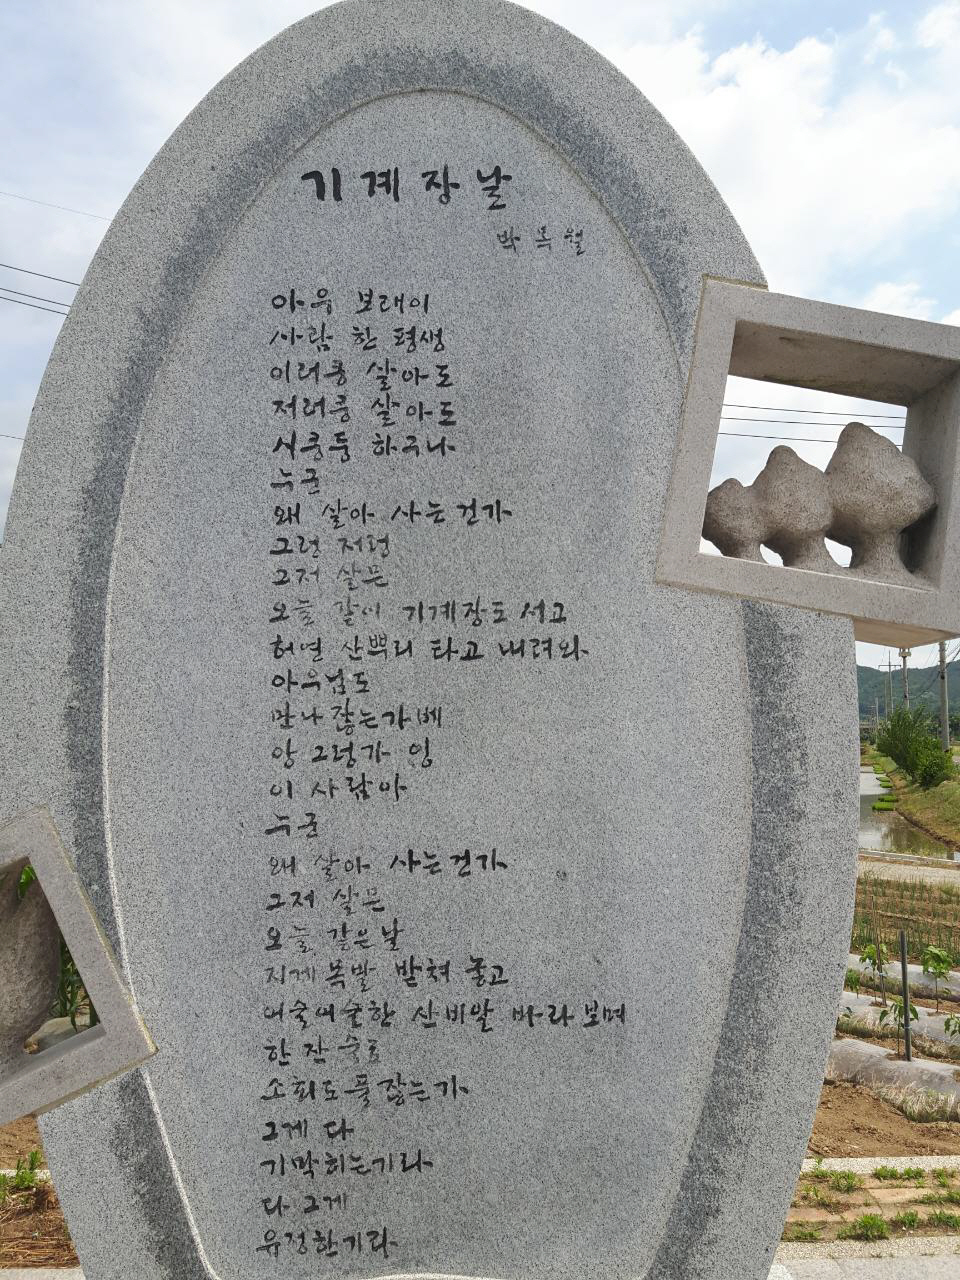 기계장날
박목월
아우 보래이
사람 한 평생
이러쿵 살아도
저러쿵 살아도
시쿵둥 하구나
누군
왜 살아 사는건가
그렁 저렁
그저 살믄
오늘 같이 기계장도 서고
허연 산뿌리 타고 내려와
아우님도
만나잖는가베
앙 그렁가 잉
이 사람아
누군
왜 살아 사는건가
그저 살믄
오늘 같은날
지게목발 받쳐 놓고
어슬어슬한 산비알 바라보며
한 잔 술로
소회도풀잖는가
그게 다
기막히는기라
다 그게
유정한기라